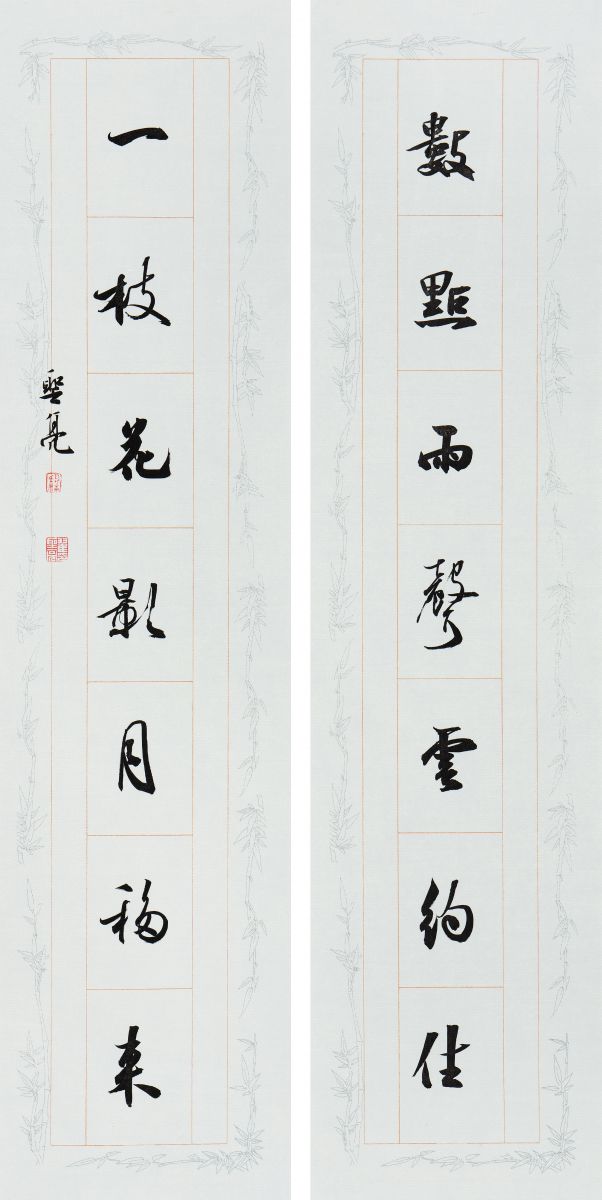 數點雨聲雲約住
一枝花影月移來
亮